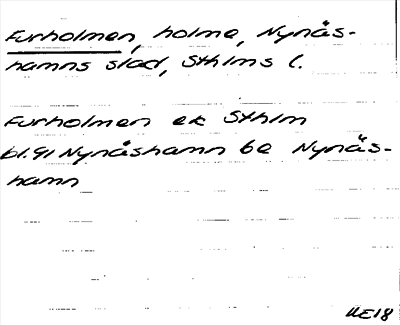 Furholmen, holme, Nynäs-
hamns stad, Sthlms l.
Furholmen ek Sthlm
bl. 91 Nynäshamn be Nynäs-
hamn